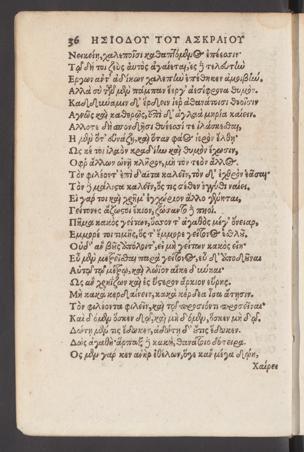 36 ΗΣΙΟΔΟΥ ΤΟΥ ΑΣΚΡΑΙΟΥ
Νεικείη, χαλεποῖσι καθαπτόμενος ἐπέεσσιν·
Τῷ δή τοι ζεὺς αὐτὸς ἀγαίεται, ἐς ἢ τελευτὴν
Ἔργων ἀντ' ἀδίκων χαλεπὴν ἐπέθηκεν ἀμοιβήν.
Ἀλλὰ σὺ τῶν μὲν πάμπαν ἔεργ' ἀεσίφρονα θυμόν.
Καδδύναμιν δ' ἔρδειν ἱερ' ἀθανάτοισι θεοῖσιν
Ἁγνῶς καὶ καθαρῶς, ἐπὶ δ' ἀγλαὰ μηρία καίειν.
Ἄλλοτε δὴ σπονδῇσι θυέεσσί τε ἱλάσκεσθαι,
Ἢ μὲν ὅτ' εὐνάζῃ, καὶ ὅταν φάος ἱερὸν ἔλθῃ·
Ὥς κέ τοι ἵλαον κραδίην καὶ θυμὸν ἔχωσιν,
Ὄφρ' ἄλλων ὠνῇ κλῆρον, μὴ τὸν τεὸν ἄλλος.
Τὸν φιλέοντ' ἐπὶ δαῖτα καλεῖν, τὸν δ' ἐχθρὸν ἐᾶσαι·
Τὸν δὲ μάλιστα καλεῖν, ὅς τις σέθεν ἐγγύθι ναίει,
Εἰ γάρ τοι καὶ χρῆμ' ἐγχώριον ἄλλο γένηται,
Γείτονες ἄζωστοι ἔκιον, ζώσαντο δὲ πηοί.
Πῆμα κακὸς γείτων, ὅσον τ' ἀγαθὸς μέγ' ὄνειαρ,
Ἔμμορέ τοι τιμῆς, ὅς τ' ἔμμορε γείτονος ἐσθλοῦ,
Οὐδ' ἂν βοῦς ἀπόλοιτ', εἰ μὴ γείτων κακὸς εἴη·
Εὖ μὲν μετρεῖσθαι παρὰ γείτονος, εὖ δ' ἀποδοῦναι
Αὐτῷ τῷ μέτρῳ, καὶ λώϊον αἴκε δύνηαι·
Ὡς ἂν χρηΐζων καὶ ἐς ὕστερον ἄρκιον εὕρῃς.
Μὴ κακὰ κερδαίνειν, κακὰ κέρδεα ἶσα ἄτῃσιν.
Τὸν φιλέοντα φιλεῖν, καὶ τῷ προσιόντι προσεῖναι·
Καὶ δόμεν ὅς κεν δῷ, καὶ μὴ δόμεν, ὅς κεν μὴ δῷ.
Δώτῃ μέν τις ἔδωκεν, ἀδώτῃ δ' οὔτις ἔδωκεν.
Δὼς ἀγαθὴ· ἅρπαξ δὲ κακὴ, θανάτοιο δότειρα.
Ὃς μὲν γάρ κεν ἀνὴρ ἐθέλων, ὅγε κἂν μέγα δώῃ,
Χαίρει